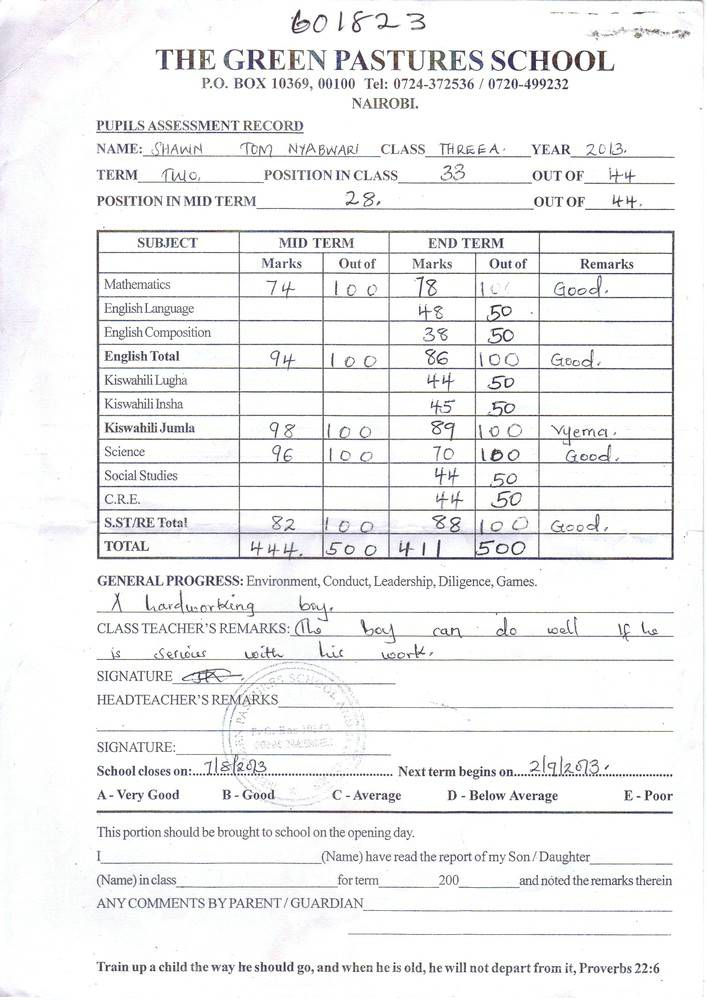 601823
THE GREEN PASTURES SCHOOL
P.O. BOX 10369, 00100 Tel: 0724-372536 / 0720-499232
NAIROBI.
PUPILS ASSESSMENT RECORD
NAME: SHAWN TOM NYABWARI CLASS THREE A. YEAR 2013.
TERM TWO, POSITION IN CLASS 33 OUT OF 44
POSITION IN MID TERM 28. OUT OF 44.
SUBJECT MID TERM END TERM
Marks Out of Marks Out of Remarks
Mathematics 74 100 78 100 Good.
English Language 48 50
English Composition 38 50
English Total 94 100 86 100 Good.
Kiswahili Lugha 44 50
Kiswahili Insha 45 50
Kiswahili Jumla 98 100 89 100 Vyema.
Science 96 100 70 100 Good.
Social Studies 44 50
C.R.E. 44 50
S.ST/RE Total 82 100 88 100 Good.
TOTAL 444. 500 411 500
GENERAL PROGRESS: Environment, Conduct, Leadership, Diligence, Games.
A hardworking boy.
CLASS TEACHER'S REMARKS: The boy can do well If he
is serious with his work.
SIGNATURE
HEADTEACHER'S REMARKS
SIGNATURE:
School closes on: 7/8/2013 Next term begins on 2/9/2013.
A - Very Good B - Good C - Average D - Below Average E - Poor
This portion should be brought to school on the opening day.
I (Name) have read the report of my Son / Daughter
(Name) in class for term 200 and noted the remarks therein
ANY COMMENTS BY PARENT / GUARDIAN
Train up a child the way he should go, and when he is old, he will not depart from it, Proverbs 22:6